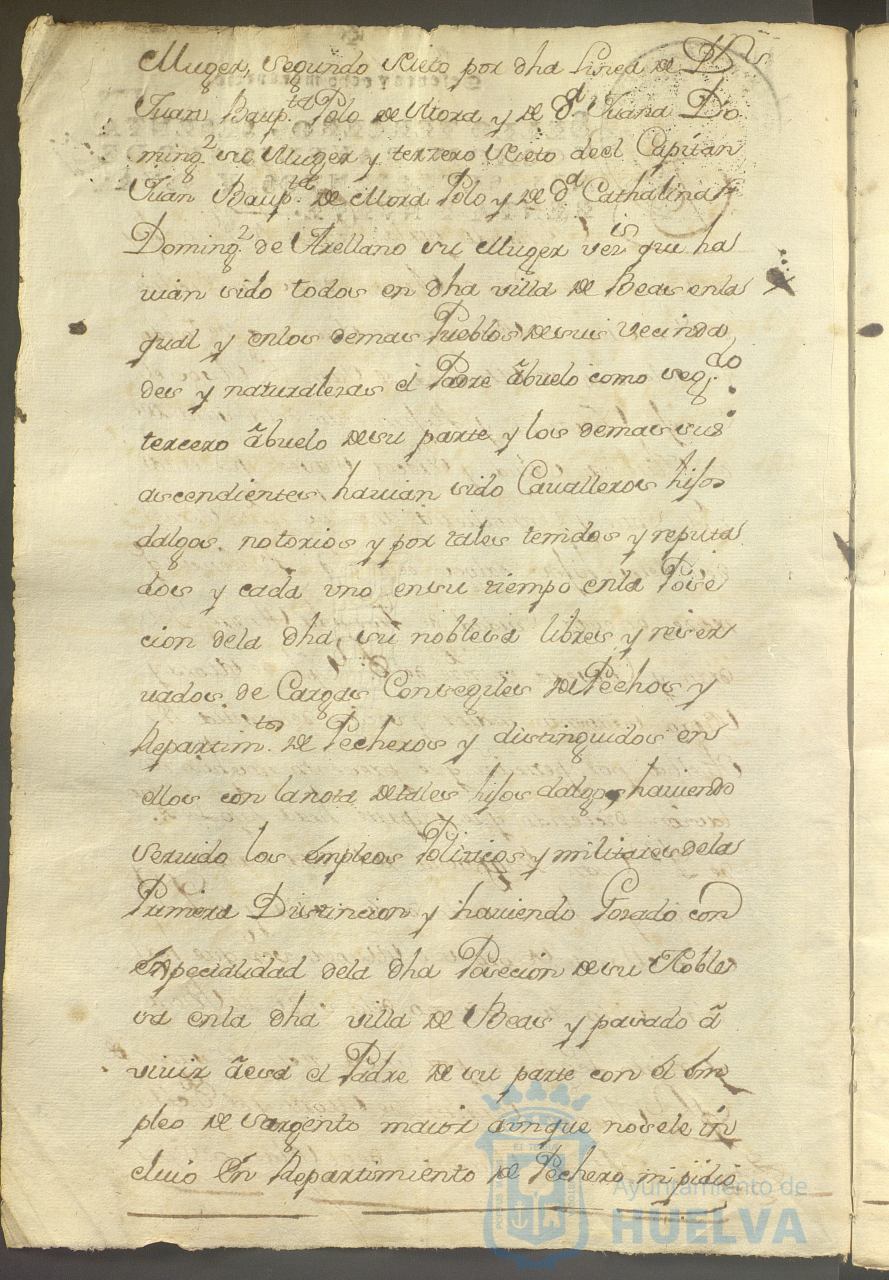 Muger, Segundo Nieto por dha Linea de Dn
Juan Baup.ta Polo de Mora y de d.a Juana Do
ming.z su Muger y terzero Nieto de el Capitan
Juan Baup.ta de Mora Polo y de d.a Cathalina
Doming.z de Arellano su Muger vez.s que ha
uian sido todos en dha villa de Beas enla
qual y enlos demas Pueblos desus vecinda
des y naturalezas el Padre ãbuelo como seg.do
tercero ãbuelo desu parte y los demas sus
ascendientes hauian sido Cavalleros hijos
dalgos notorios y por tales tenidos y reputa
dos y cada uno ensu tiempo enla Pose
cion dela dha su noblesa libres y reser
uados de Cargas Consegiles de Pechos y
Repartim.tos de Pecheros y distinguidos en
ellos con lanota detales hijos dalgo, hauiendo
seruido los empleos Politicos y militares dela
Primera Distincion y hauiendo Gozado con
Especialidad dela dha Posecion desu Noble
sa enla dha villa de Beas y pasado ã
viuir ã esa el Padre de su parte con el em
pleo de sargento maior aunque nosele in
cluio En Repartimiento de Pechero ni pidio
Ayuntamiento de
HUELVA